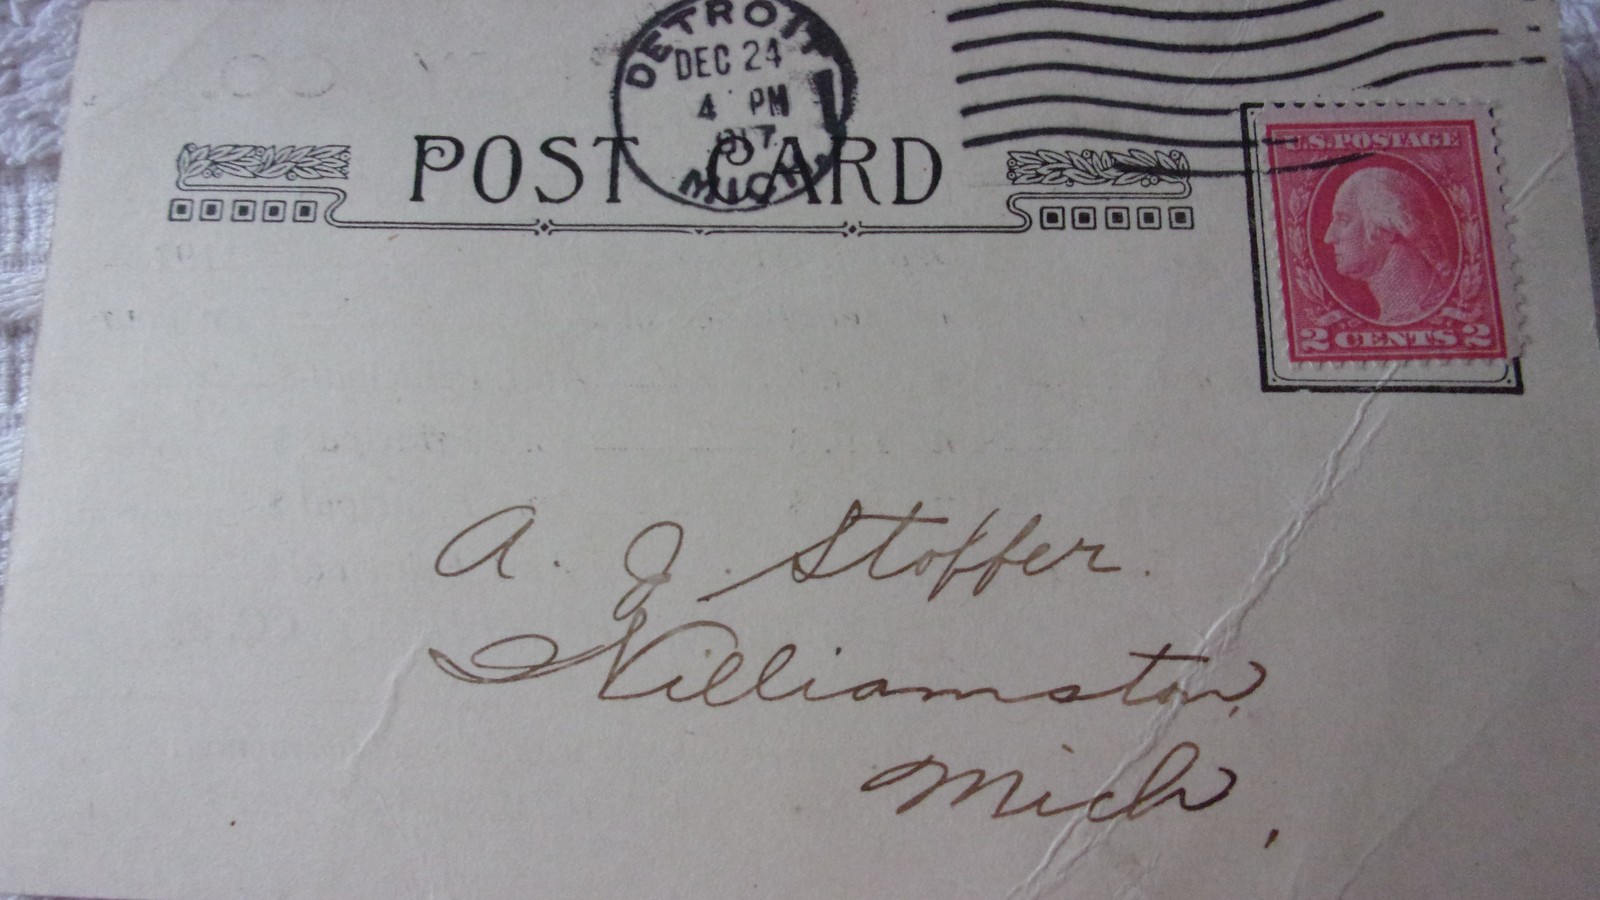 DETROIT
DEC 24
4 PM
1917
MICH.
POST CARD
U.S. POSTAGE
2 CENTS 2
A. J. Stoffer.
Williamston,
Mich,